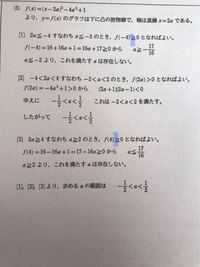 (5) f(x)=(x−2a)²−4a²+1
より，y=f(x) のグラフは下に凸の放物線で，軸は直線 x=2a である。
[1] 2a≦−4 すなわち a≦−2 のとき，f(−4)≧0 となればよい。
f(−4)=16+16a+1=16a+17≧0 から a≧−17/16
a≦−2 より，これを満たす a は存在しない。
[2] −4<2a<4 すなわち −2<a<2 のとき，f(2a)>0 となればよい。
f(2a)=−4a²+1>0 から (2a+1)(2a−1)<0
ゆえに −1/2<a<1/2 これは −2<a<2 を満たす。
したがって −1/2<a<1/2
[3] 2a≧4 すなわち a≧2 のとき，f(4)≧0 となればよい。
f(4)=16−16a+1=17−16a≧0 から a≦17/16
a≧2 より，これを満たす a は存在しない。
[1]，[2]，[3] より，求める a の範囲は −1/2<a<1/2